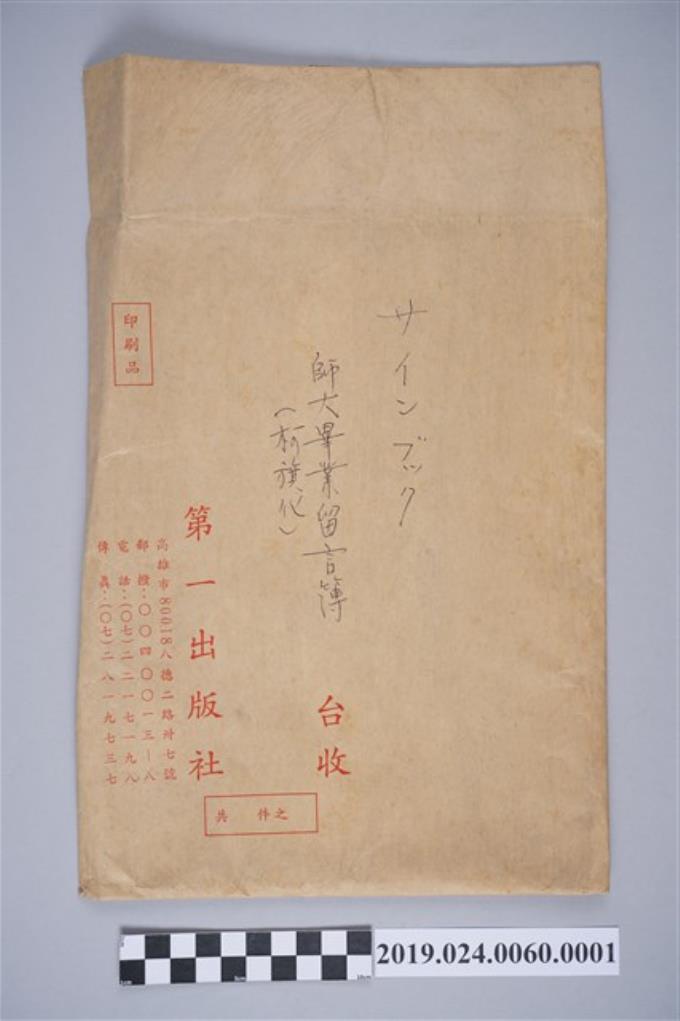 サインブック
師大畢業留言簿
(柯旗化)
台收
印刷品
第一出版社
高雄市80018八德二路卅七號
郵撥：〇〇四〇〇一三—八
電話：(〇七)二二一七一九八
傳真：(〇七)二八一九七三七
共 件之
2019.024.0060.0001